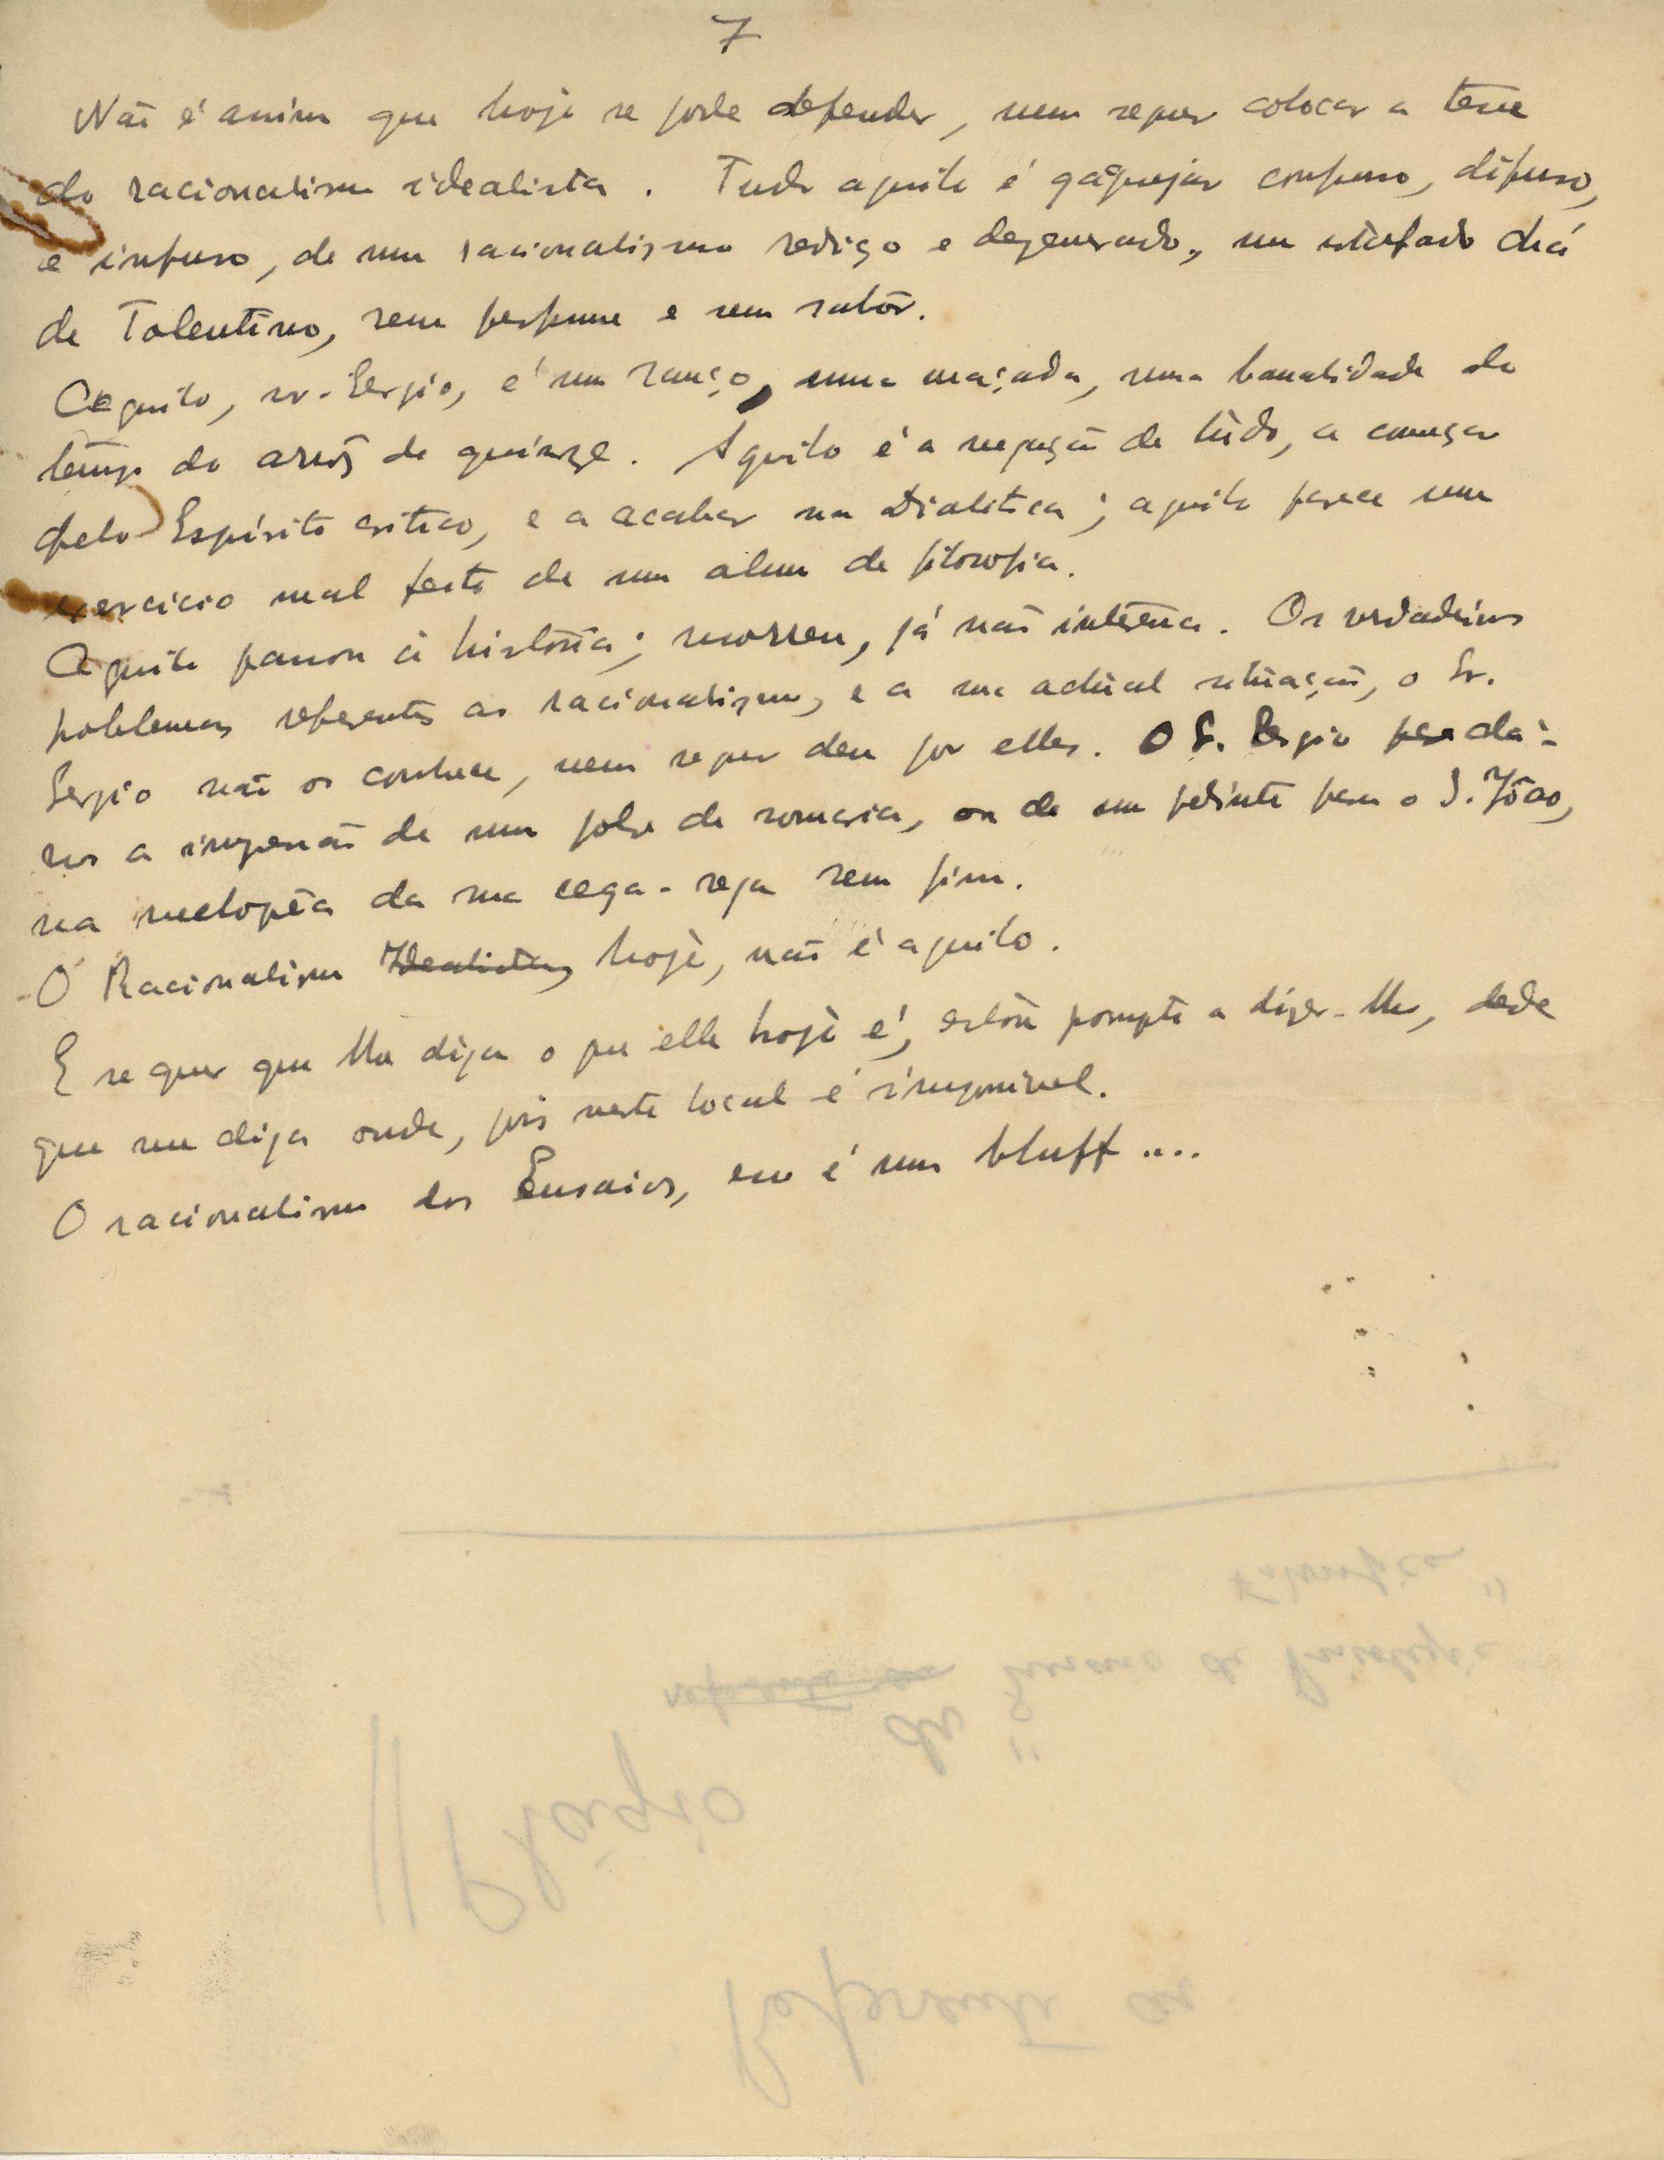 7
Não é assim que hoje se pode defender, nem sequer colocar a tese
do racionalismo idealista. Tudo aquilo é gáguejar confuso, difuso,
e infuso, de um racionalismo rediço e degenerado, um estafado chá
de Tolentino, sem perfume e sem sabôr.
Aquilo, sr. Sergio, é um ranço, uma maçada, uma banalidade do
tempo do arroz de quinze. Aquilo é a negação de túdo, a começar
pelo Espírito critico, e a acabar na Dialetica; aquilo parece um
exercicio mal feito de um aluno de filosofia.
Aquilo passou á história; morreu, já não interessa. Os verdadeiros
problemas referentes ao racionalismo, e a sua actual situação, o Sr.
Sergio não os conhece, nem sequer deu por elles. O S. Sergio dá-
nos a impressão de um pobre de romaria, ou de um pedinte para o S. João,
na melopêa da sua cega-rega sem fim.
O Racionalismo Idealista, hoje, não é aquilo.
E se quer que lhe diga o que elle hoje é, estou prompto a dizer-lho, desde
que me diga onde, pois neste local é impossivel.
O racionalismo dos Ensaios, esse é um bluff....
Filosofica"
referente ao de "Ensaio de Psicologia
// Plágio
Referente ao